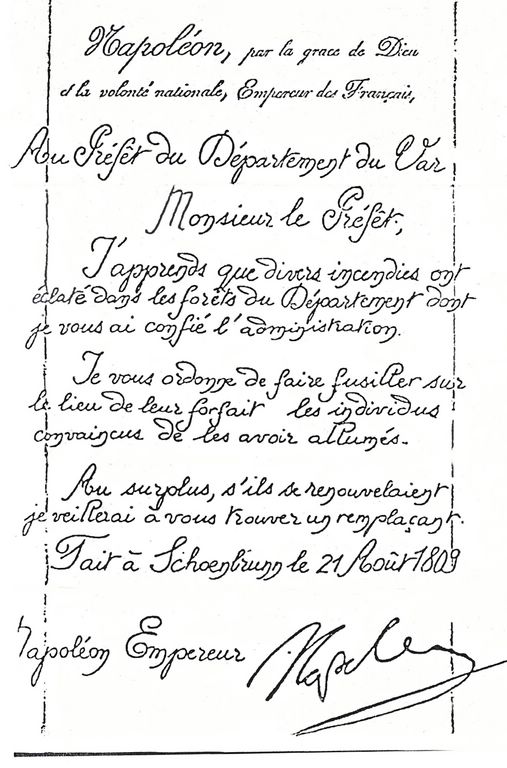 Napoléon, par la grace de Dieu
et la volonté nationale, Empereur des Français,
Au Préfêt du Département du Var
Monsieur le Préfêt,
J'apprends que divers incendies ont
éclaté dans les forêts du Département dont
je vous ai confié l'administration.
Je vous ordonne de faire fusiller sur
le lieu de leur forfait les individus
convaincus de les avoir allumés.
Au surplus, s'ils se renouvelaient
je veillerai à vous trouver un remplaçant.
Fait à Schoenbrunn le 21 Août 1809
Napoléon Empereur Napoleon